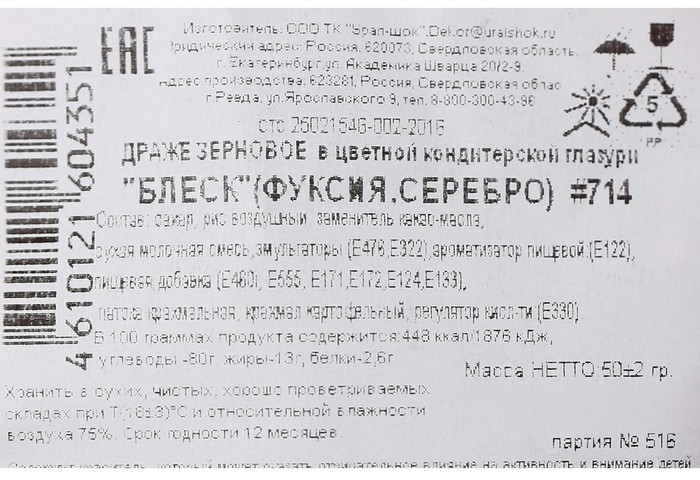 EAC
Изготовитель: ООО ТК "Урал-шок", Dekor@uralshok.ru
Юридический адрес: Россия, 620073, Свердловская область,
г. Екатеринбург, ул. Академика Шварца 20/2-9.
Адрес производства: 623281, Россия, Свердловская обла
г.Ревда, ул.Ярославского 9, тел. 8-800-300-43-96
сто 25021546-002-2016
ДРАЖЕ ЗЕРНОВОЕ в цветной кондитерской глазури
"БЛЕСК"(ФУКСИЯ,СЕРЕБРО) #714
Состав: сахар, рис воздушный, заменитель какао-масла,
сухая молочная смесь, эмульгаторы (E476,E322),ароматизатор пищевой,(E122),
пищевая добавка (E460), E555, E171,E172,E124,E133),
патока крахмальная, крахмал картофельный, регулятор кисл-ти (E330)
В 100 граммах продукта содержится:448 ккал/1876 кДж,
углеводы -80г. жиры-13г, белки-2,6г
Масса НЕТТО:50±2 гр.
Хранить в сухих, чистых, хорошо проветриваемых
складах при T(18±3)°C и относительной влажности
воздуха 75%. Срок годности 12 месяцев.
партия № 516
Содержит краситель, который может оказать отрицательное влияние на активность и внимание детей
4 610121 604351
5
PP